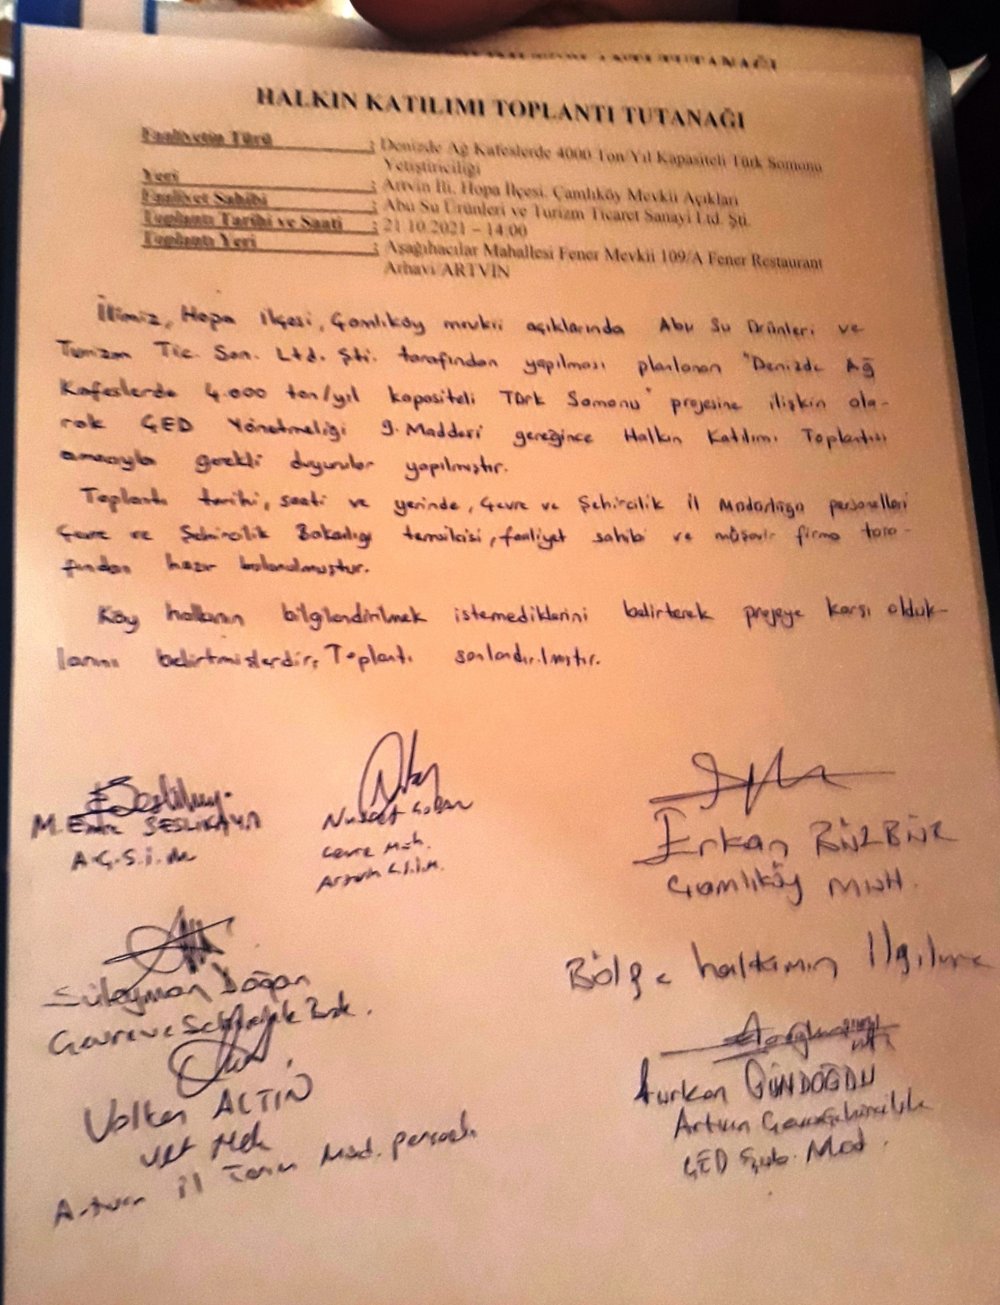 TOPLANTI TUTANAĞI
HALKIN KATILIMI TOPLANTI TUTANAĞI
Faaliyetin Türü : Denizde Ağ Kafeslerde 4000 Ton/Yıl Kapasiteli Türk Somonu
Yetiştiriciliği
Yeri : Artvin İli, Hopa İlçesi, Çamlıköy Mevkii Açıkları
Faaliyet Sahibi : Abu Su Ürünleri ve Turizm Ticaret Sanayi Ltd. Şti.
Toplantı Tarihi ve Saati : 21.10.2021 – 14:00
Toplantı Yeri : Aşağıhacılar Mahallesi Fener Mevkii 109/A Fener Restaurant
Arhavi/ARTVİN
İlimiz, Hopa ilçesi, Çamlıköy mevkii açıklarında Abu Su Ürünleri ve
Turizm Tic. San. Ltd. Şti. tarafından yapılması planlanan "Denizde Ağ
Kafeslerde 4.000 ton/yıl kapasiteli Türk Somonu" projesine ilişkin ola-
rak ÇED Yönetmeliği 9. Maddesi gereğince Halkın Katılımı Toplantısı
amacıyla gerekli duyurular yapılmıştır.
Toplantı tarihi, saati ve yerinde, Çevre ve Şehircilik İl Müdürlüğü personelleri
Çevre ve Şehircilik Bakanlığı temsilcisi, faaliyet sahibi ve müşavir firma tara-
fından hazır bulunulmuştur.
Köy halkının bilgilendirilmek istemediklerini belirterek projeye karşı olduk-
larını belirtmişlerdir, Toplantı sonlandırılmıştır.
M. Emre SESLİKAYA
A.Ç.Ş.İ.M
Nusret Çoban
Çevre Müh.
Artvin Ç.Ş.İ.M.
Erkan BÜZBÜZ
Çamlıköy Muh.
Süleyman Doğan
Çevre ve Şehircilik Bak.
Bölge halkının
Volkan ALTIN
Vet Hek
Artvin İl Tarım Müd. personeli
Türkan GÜNDOĞDU
Artvin Çevre Şehircilik
ÇED Şub. Müd.